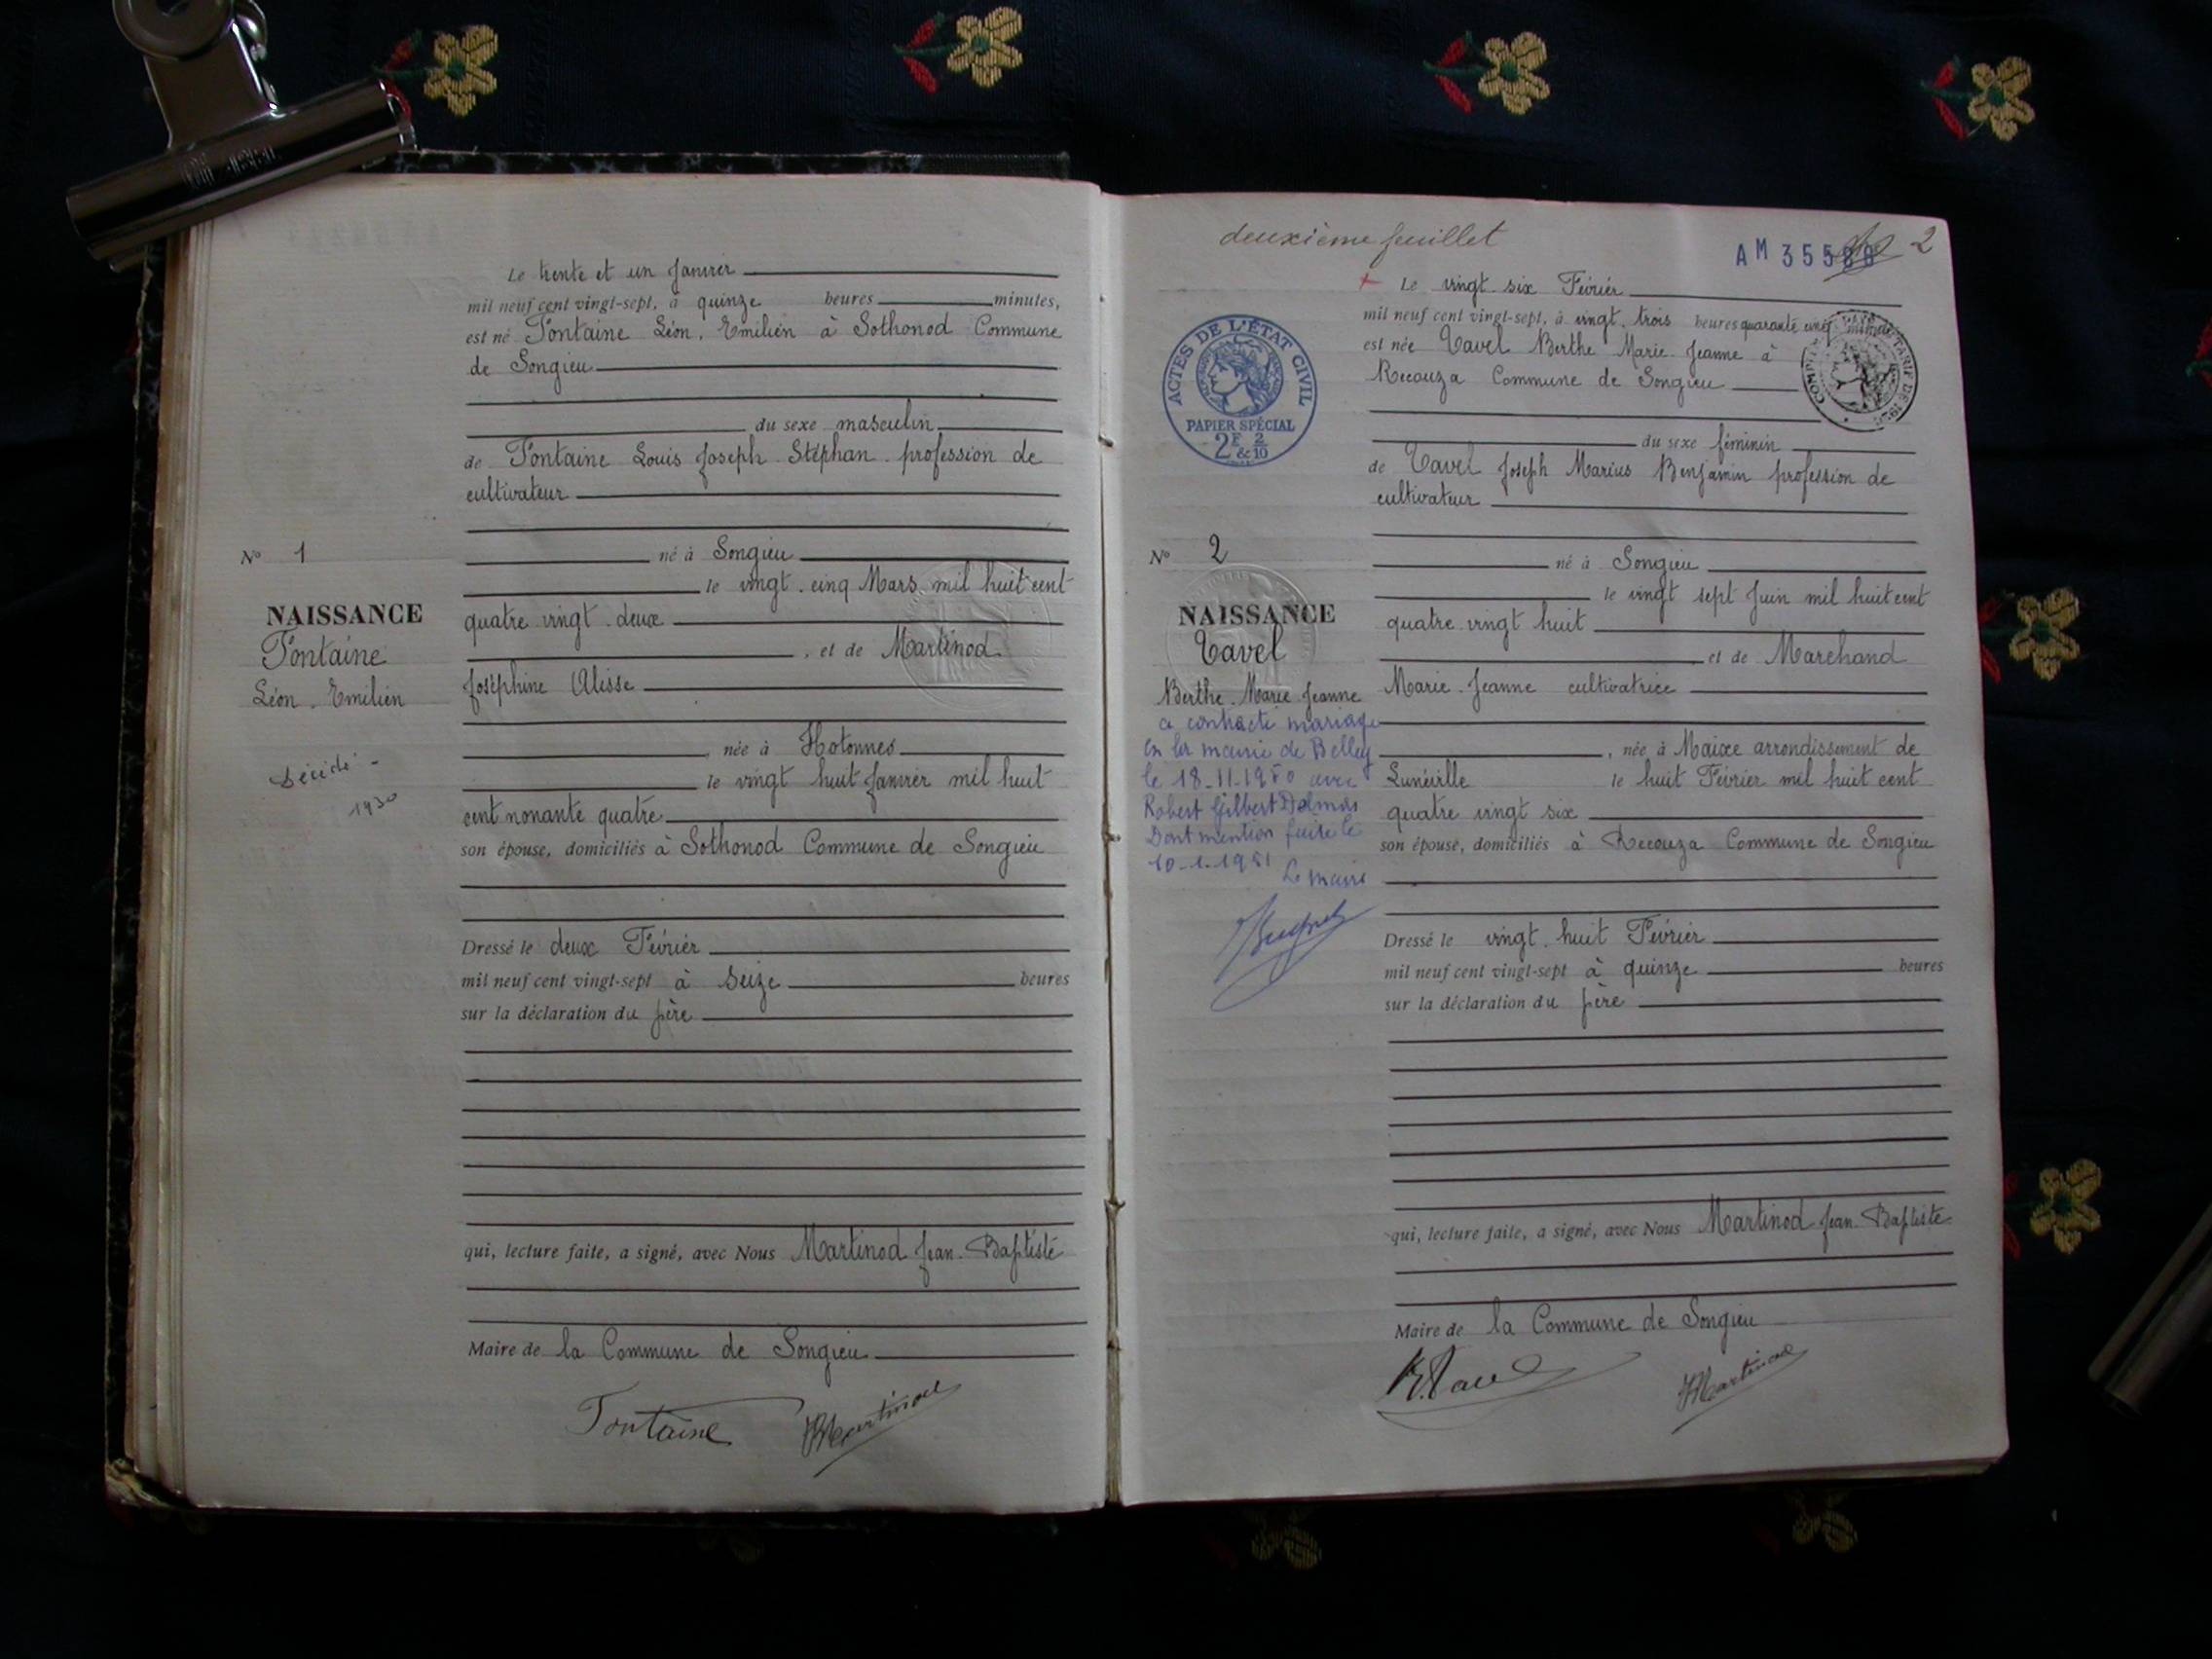 Le trente et un Janvier
mil neuf cent vingt-sept, à quinze heures minutes,
est né Fontaine Léon, Emilien à Sothonod Commune
de Songieu
du sexe masculin
de Fontaine Louis Joseph Stéphan profession de
cultivateur
N° 1
né à Songieu
le vingt cinq Mars mil huit cent
NAISSANCE
quatre vingt deux
Fontaine
, et de Martinod
Léon Emilien
Joséphine Alisse
, née à Hotonnes
Décédé
1930
le vingt huit Janvier mil huit
cent nonante quatre
son épouse, domiciliés à Sothonod Commune de Songieu
Dressé le deux Février
mil neuf cent vingt-sept à seize heures
sur la déclaration du père
qui, lecture faite, a signé, avec Nous Martinod Jean-Baptiste
Maire de la Commune de Songieu
Fontaine JBMartinod
deuxième feuillet
AM 35588 2
Le vingt six Février
mil neuf cent vingt-sept, à vingt trois heures quarante cinq minutes
est née Tavel Berthe Marie Jeanne à
Recouza Commune de Songieu
ACTES DE L'ÉTAT CIVIL
PAPIER SPÉCIAL
2F 2/10
du sexe féminin
de Tavel Joseph Marius Benjamin profession de
cultivateur
N° 2
né à Songieu
le vingt sept Juin mil huit cent
NAISSANCE
quatre vingt huit
Tavel
et de Marchand
Berthe Marie Jeanne
Marie Jeanne cultivatrice
a contracté mariage
en la mairie de Belley
le 18-11-1950 avec
Robert Gilbert Dalmais
Dont mention faite le
10-1-1951 Le maire
, née à Maixe arrondissement de
Lunéville le huit Février mil huit cent
quatre vingt six
son épouse, domiciliés à Recouza Commune de Songieu
Dressé le vingt huit Février
mil neuf cent vingt-sept à quinze heures
sur la déclaration du père
qui, lecture faite, a signé, avec Nous Martinod Jean-Baptiste
Maire de la Commune de Songieu
Tavel JBMartinod